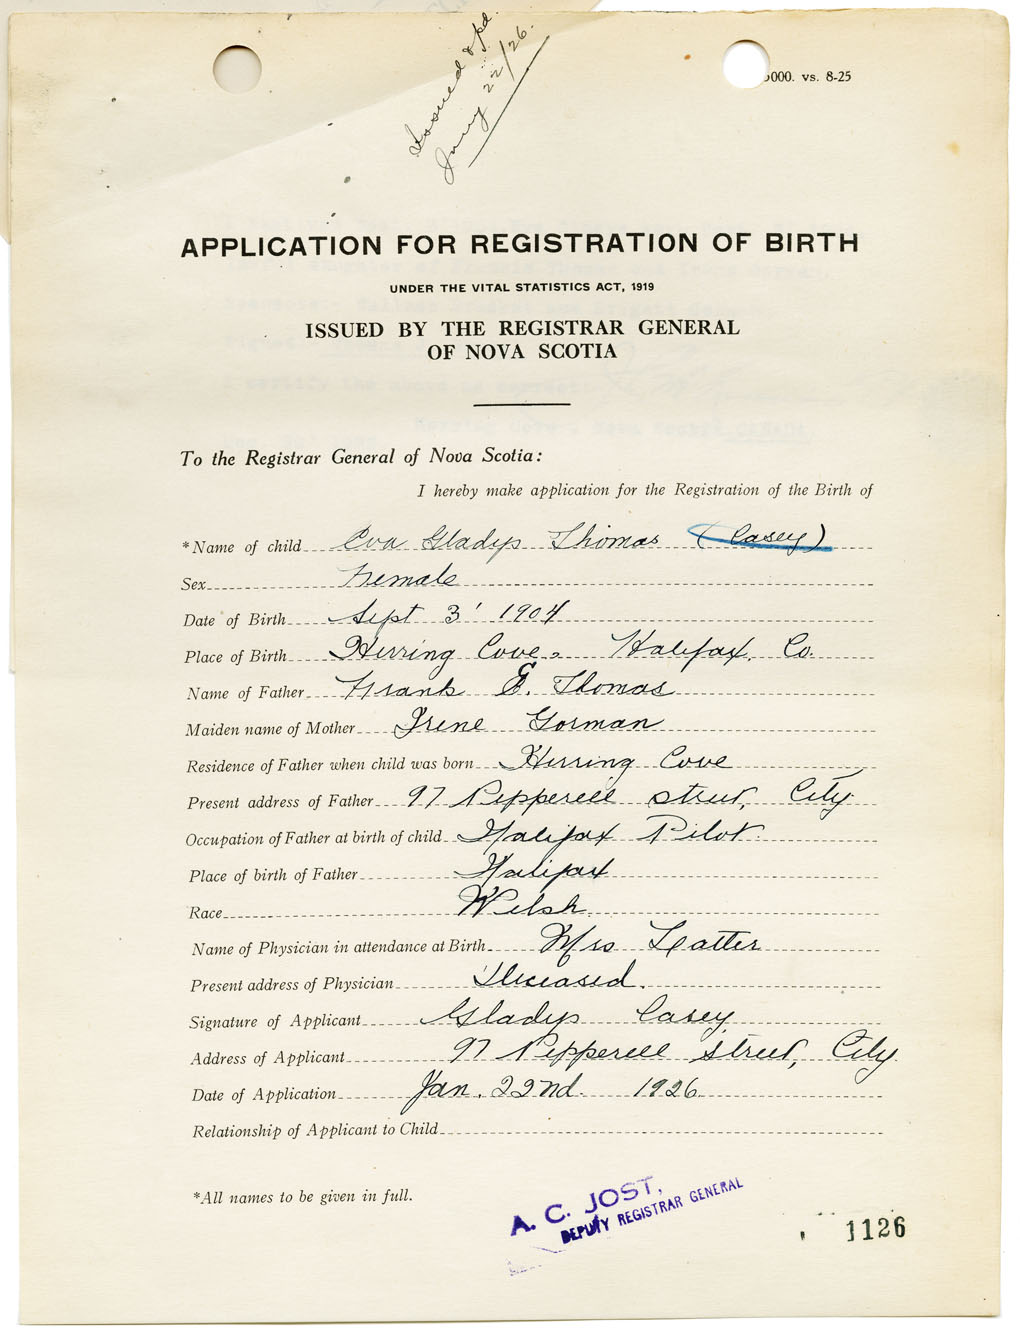 Issued & pd.
Jany 22/26.
000. vs. 8-25
APPLICATION FOR REGISTRATION OF BIRTH
UNDER THE VITAL STATISTICS ACT, 1919
ISSUED BY THE REGISTRAR GENERAL
OF NOVA SCOTIA
To the Registrar General of Nova Scotia:
I hereby make application for the Registration of the Birth of
*Name of child Eva Gladys Thomas (Casey)
Sex Female
Date of Birth Sept 3' 1904
Place of Birth Herring Cove, Halifax, Co.
Name of Father Frank G. Thomas
Maiden name of Mother Irene Gorman
Residence of Father when child was born Herring Cove
Present address of Father 97 Pepperell Street, City
Occupation of Father at birth of child Halifax Pilot.
Place of birth of Father Halifax
Race Welsh
Name of Physician in attendance at Birth Mrs
Present address of Physician Deceased.
Signature of Applicant Gladys Casey
Address of Applicant 97 Pepperell Street, City
Date of Application Jan. 22nd. 1926
Relationship of Applicant to Child
*All names to be given in full.
A. C. JOST,
DEPUTY REGISTRAR GENERAL
1126